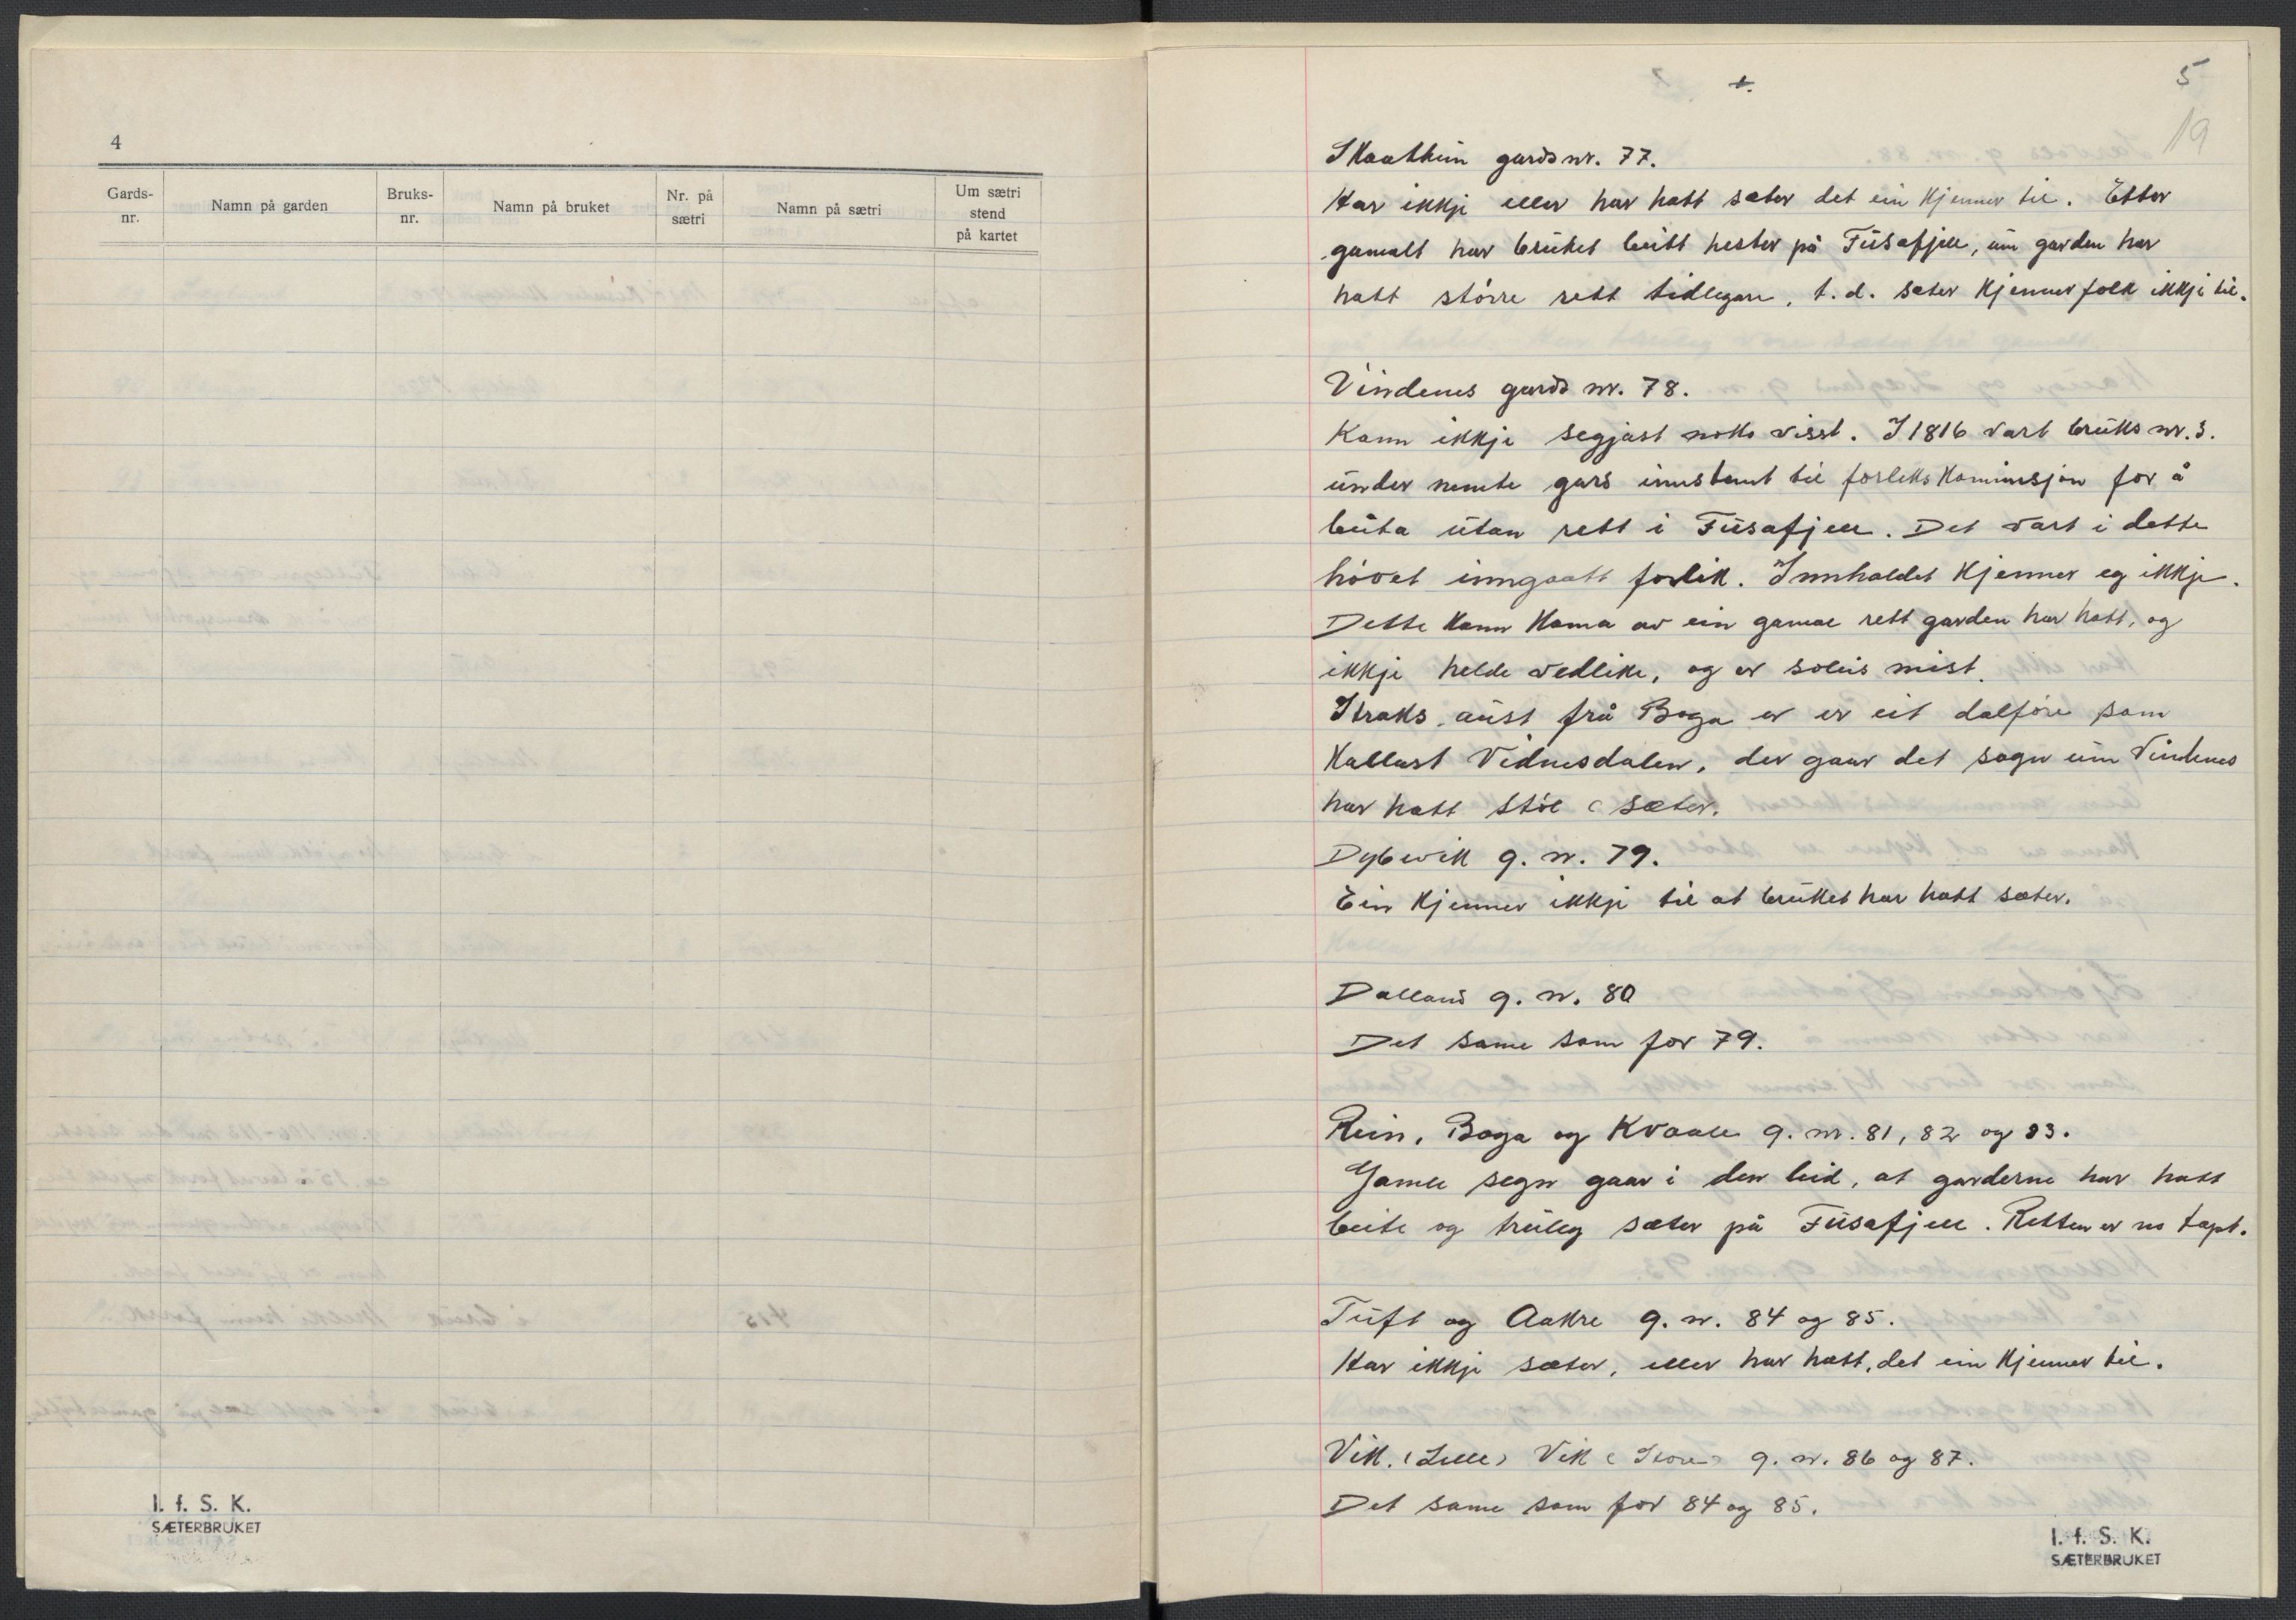 4
Gards-
nr.
Namn på garden
Bruks-
nr.
Namn på bruket
Nr. på
sætri
Namn på sætri
Um sætri
stend
på kartet
I. f. S. K.
SÆTERBRUKET
1.
5
19
Skaathun gards nr. 77.
Har ikkje eller har hatt sæter det ein kjenner til. Etter
gamalt har bruket beitt hester på Fusafjell, um garden har
hatt større rett tidlegare, t.d. sæter kjenner folk ikkje til.
Vindenes gards nr. 78.
Kann ikkje segjast noko visst. I 1816 vart bruks nr. 3.
under nemte gard innstemt til forlikskommisjon for å
beita utan rett i Fusafjell. Det vart i dette
høvet inngaatt forlik. Innhaldet kjenner eg ikkje.
Dette kann koma av ein gamal rett garden har hatt, og
ikkje helde vedlike, og er soleis mist.
Straks aust frå Boga er er eit dalføre som
kallast Vidnesdalen, der gaar det sogn um Vindenes
har hatt støl ( sæter.
Dybvik g. nr. 79.
Ein kjenner ikkje til at bruket har hatt sæter.
Dalland g. nr. 80
Det same som for 79.
Rein, Boga og Kvaale g. nr. 81, 82 og 83.
Gamle segn gaar i den leid, at garderne har hatt
beite og truleg sæter på Fusafjell. Retten er no tapt.
Tuft og Aakre g. nr. 84 og 85.
Har ikkje sæter, eller har hatt, det ein kjenner til.
Vik. (Lille) Vik (Store) g. nr. 86 og 87.
Det same som for 84 og 85.
I. f. S. K.
SÆTERBRUKET